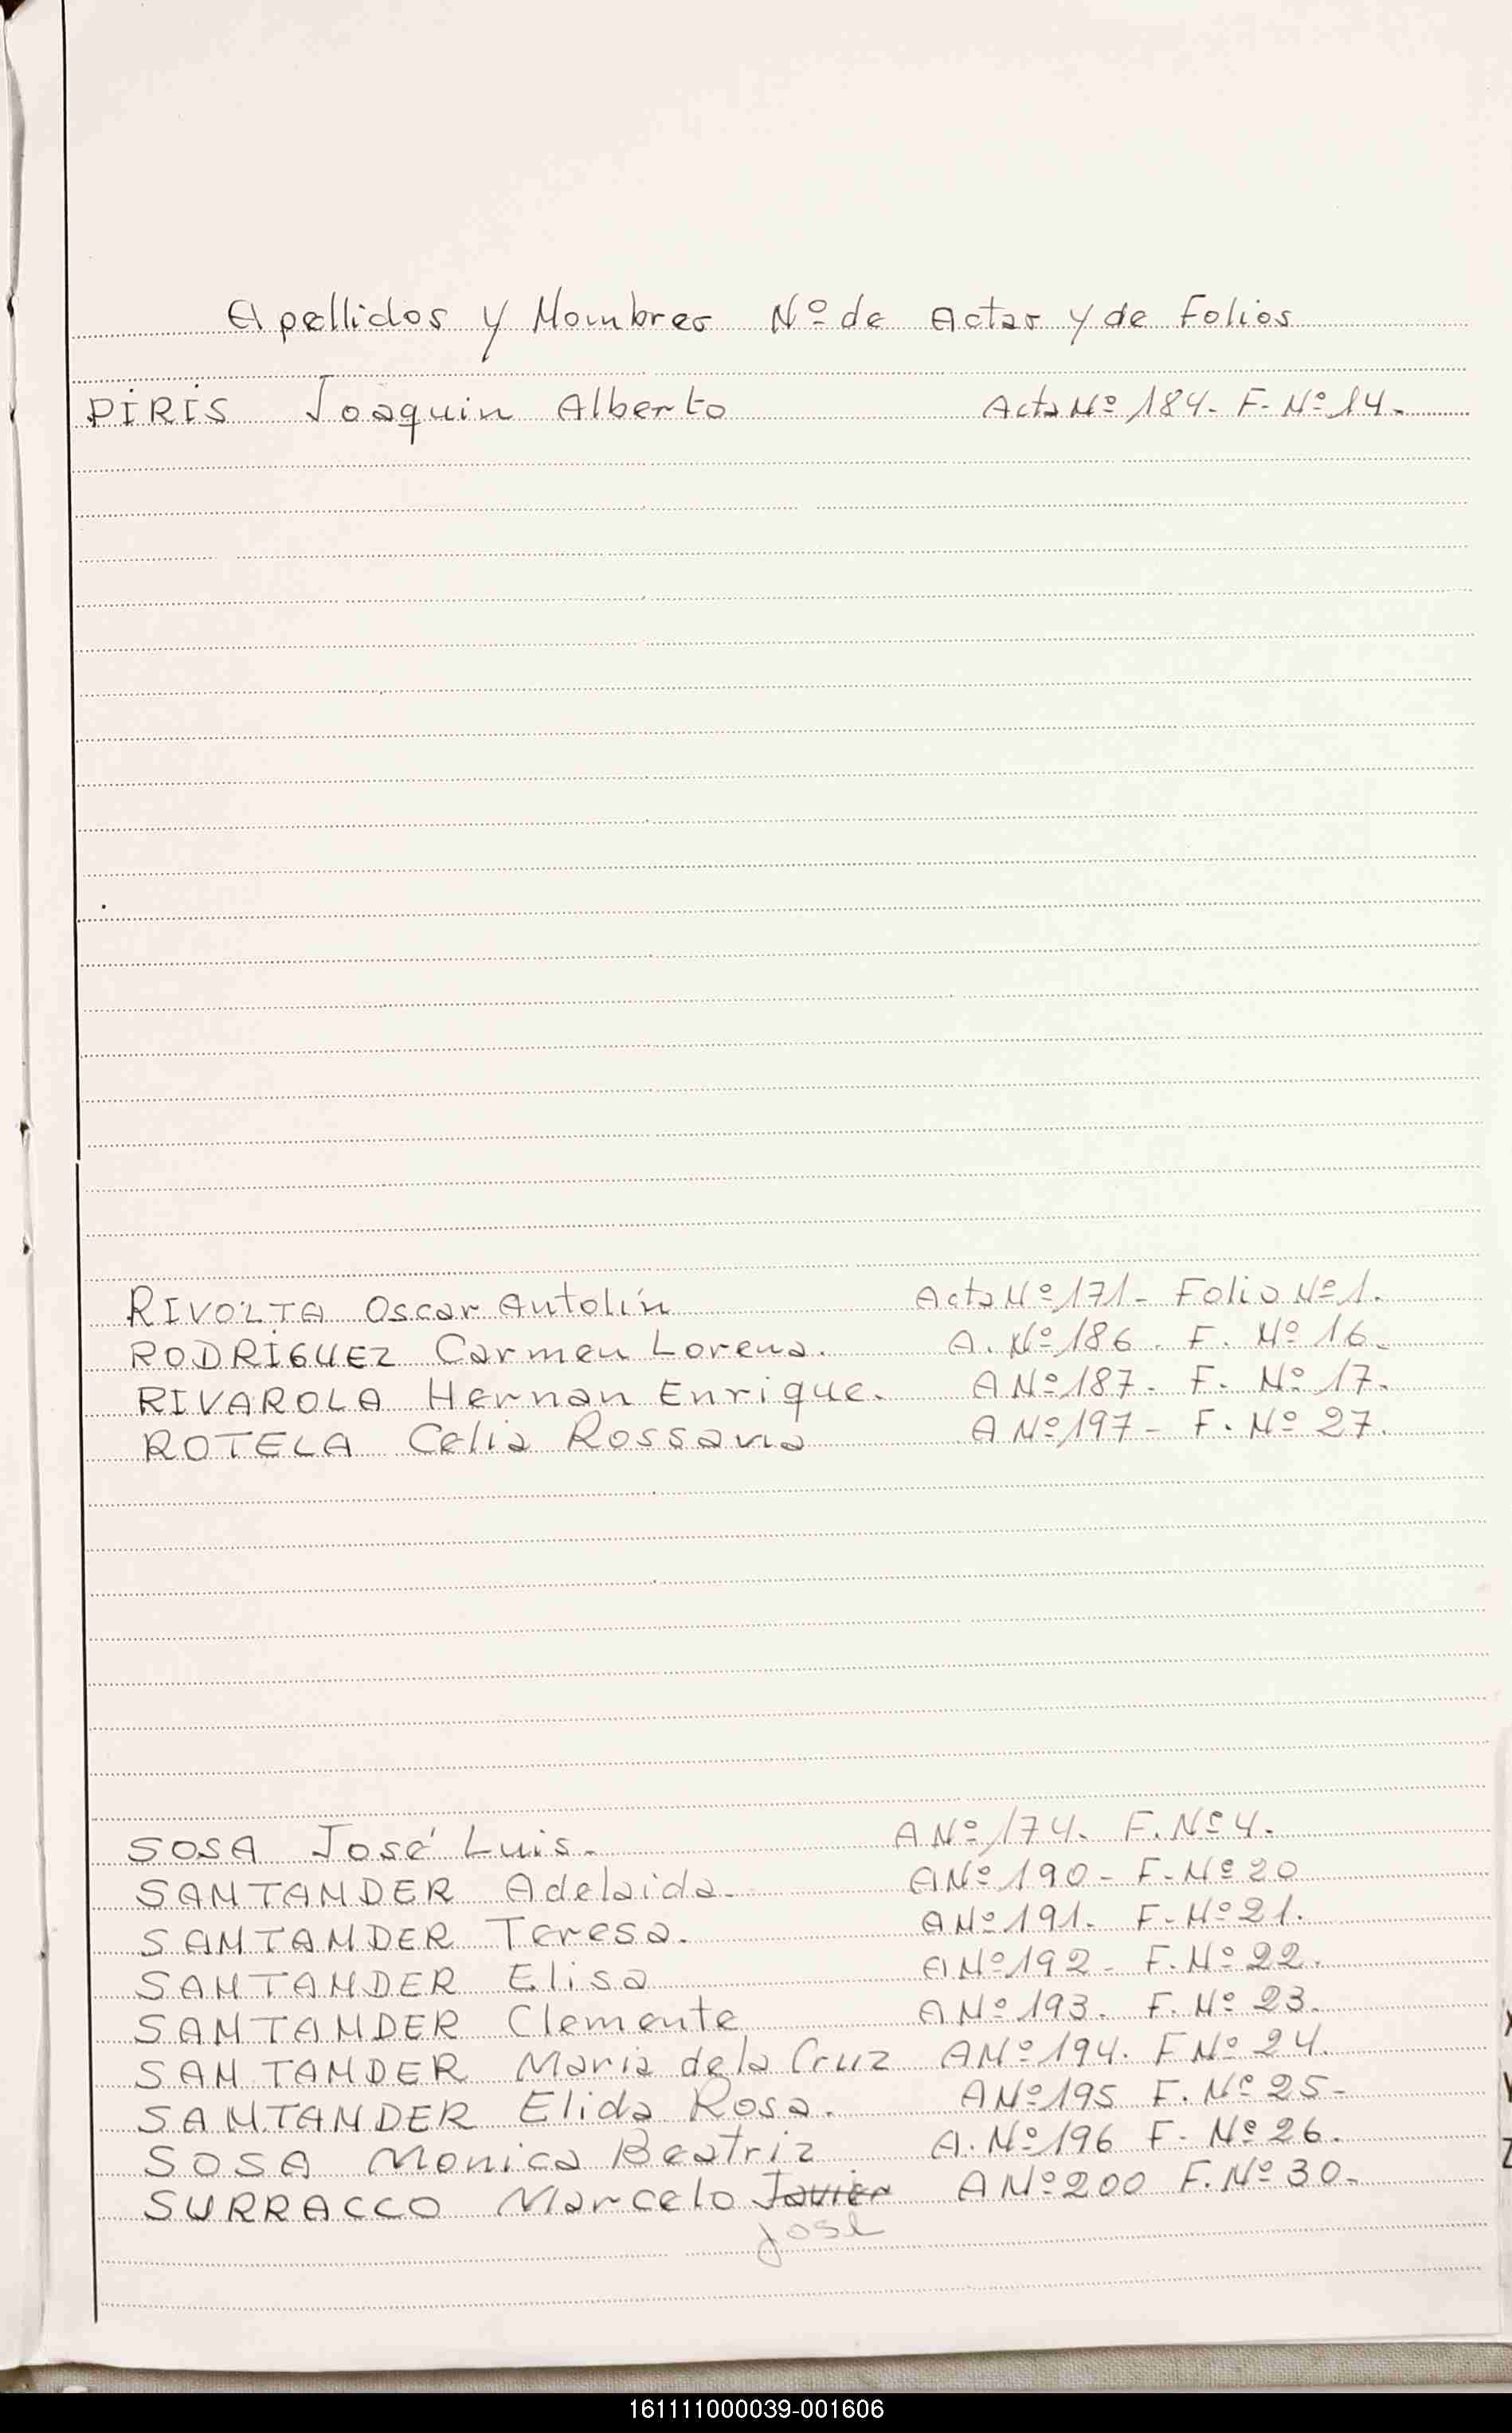 Apellidos y Nombres Nº de Actas y de Folios
PIRIS Joaquin Alberto Acta Nº 184- F- Nº 14-
RIVOLTA Oscar Antolín Acta Nº 171- Folio Nº 1.
RODRIGUEZ Carmen Lorena. A. Nº 186. F. Nº 16-
RIVAROLA Hernan Enrique. A Nº 187- F. Nº 17-
ROTELA Celia Rossana A Nº 197- F. Nº 27.
SOSA José Luis- A Nº 174. F. Nº 4-
SANTANDER Adelaida- A Nº 190- F- Nº 20
SANTANDER Teresa. A Nº 191. F- Nº 21.
SANTANDER Elisa A Nº 192- F. Nº 22.
SANTANDER Clemente A Nº 193. F. Nº 23.
SANTANDER Maria de la Cruz A Nº 194. F Nº 24.
SANTANDER Elida Rosa. A Nº 195 F. Nº 25-
SOSA Monica Beatriz A. Nº 196 F- Nº 26.
SURRACCO Marcelo Javier A Nº 200 F. Nº 30-
José
161111000039-001606